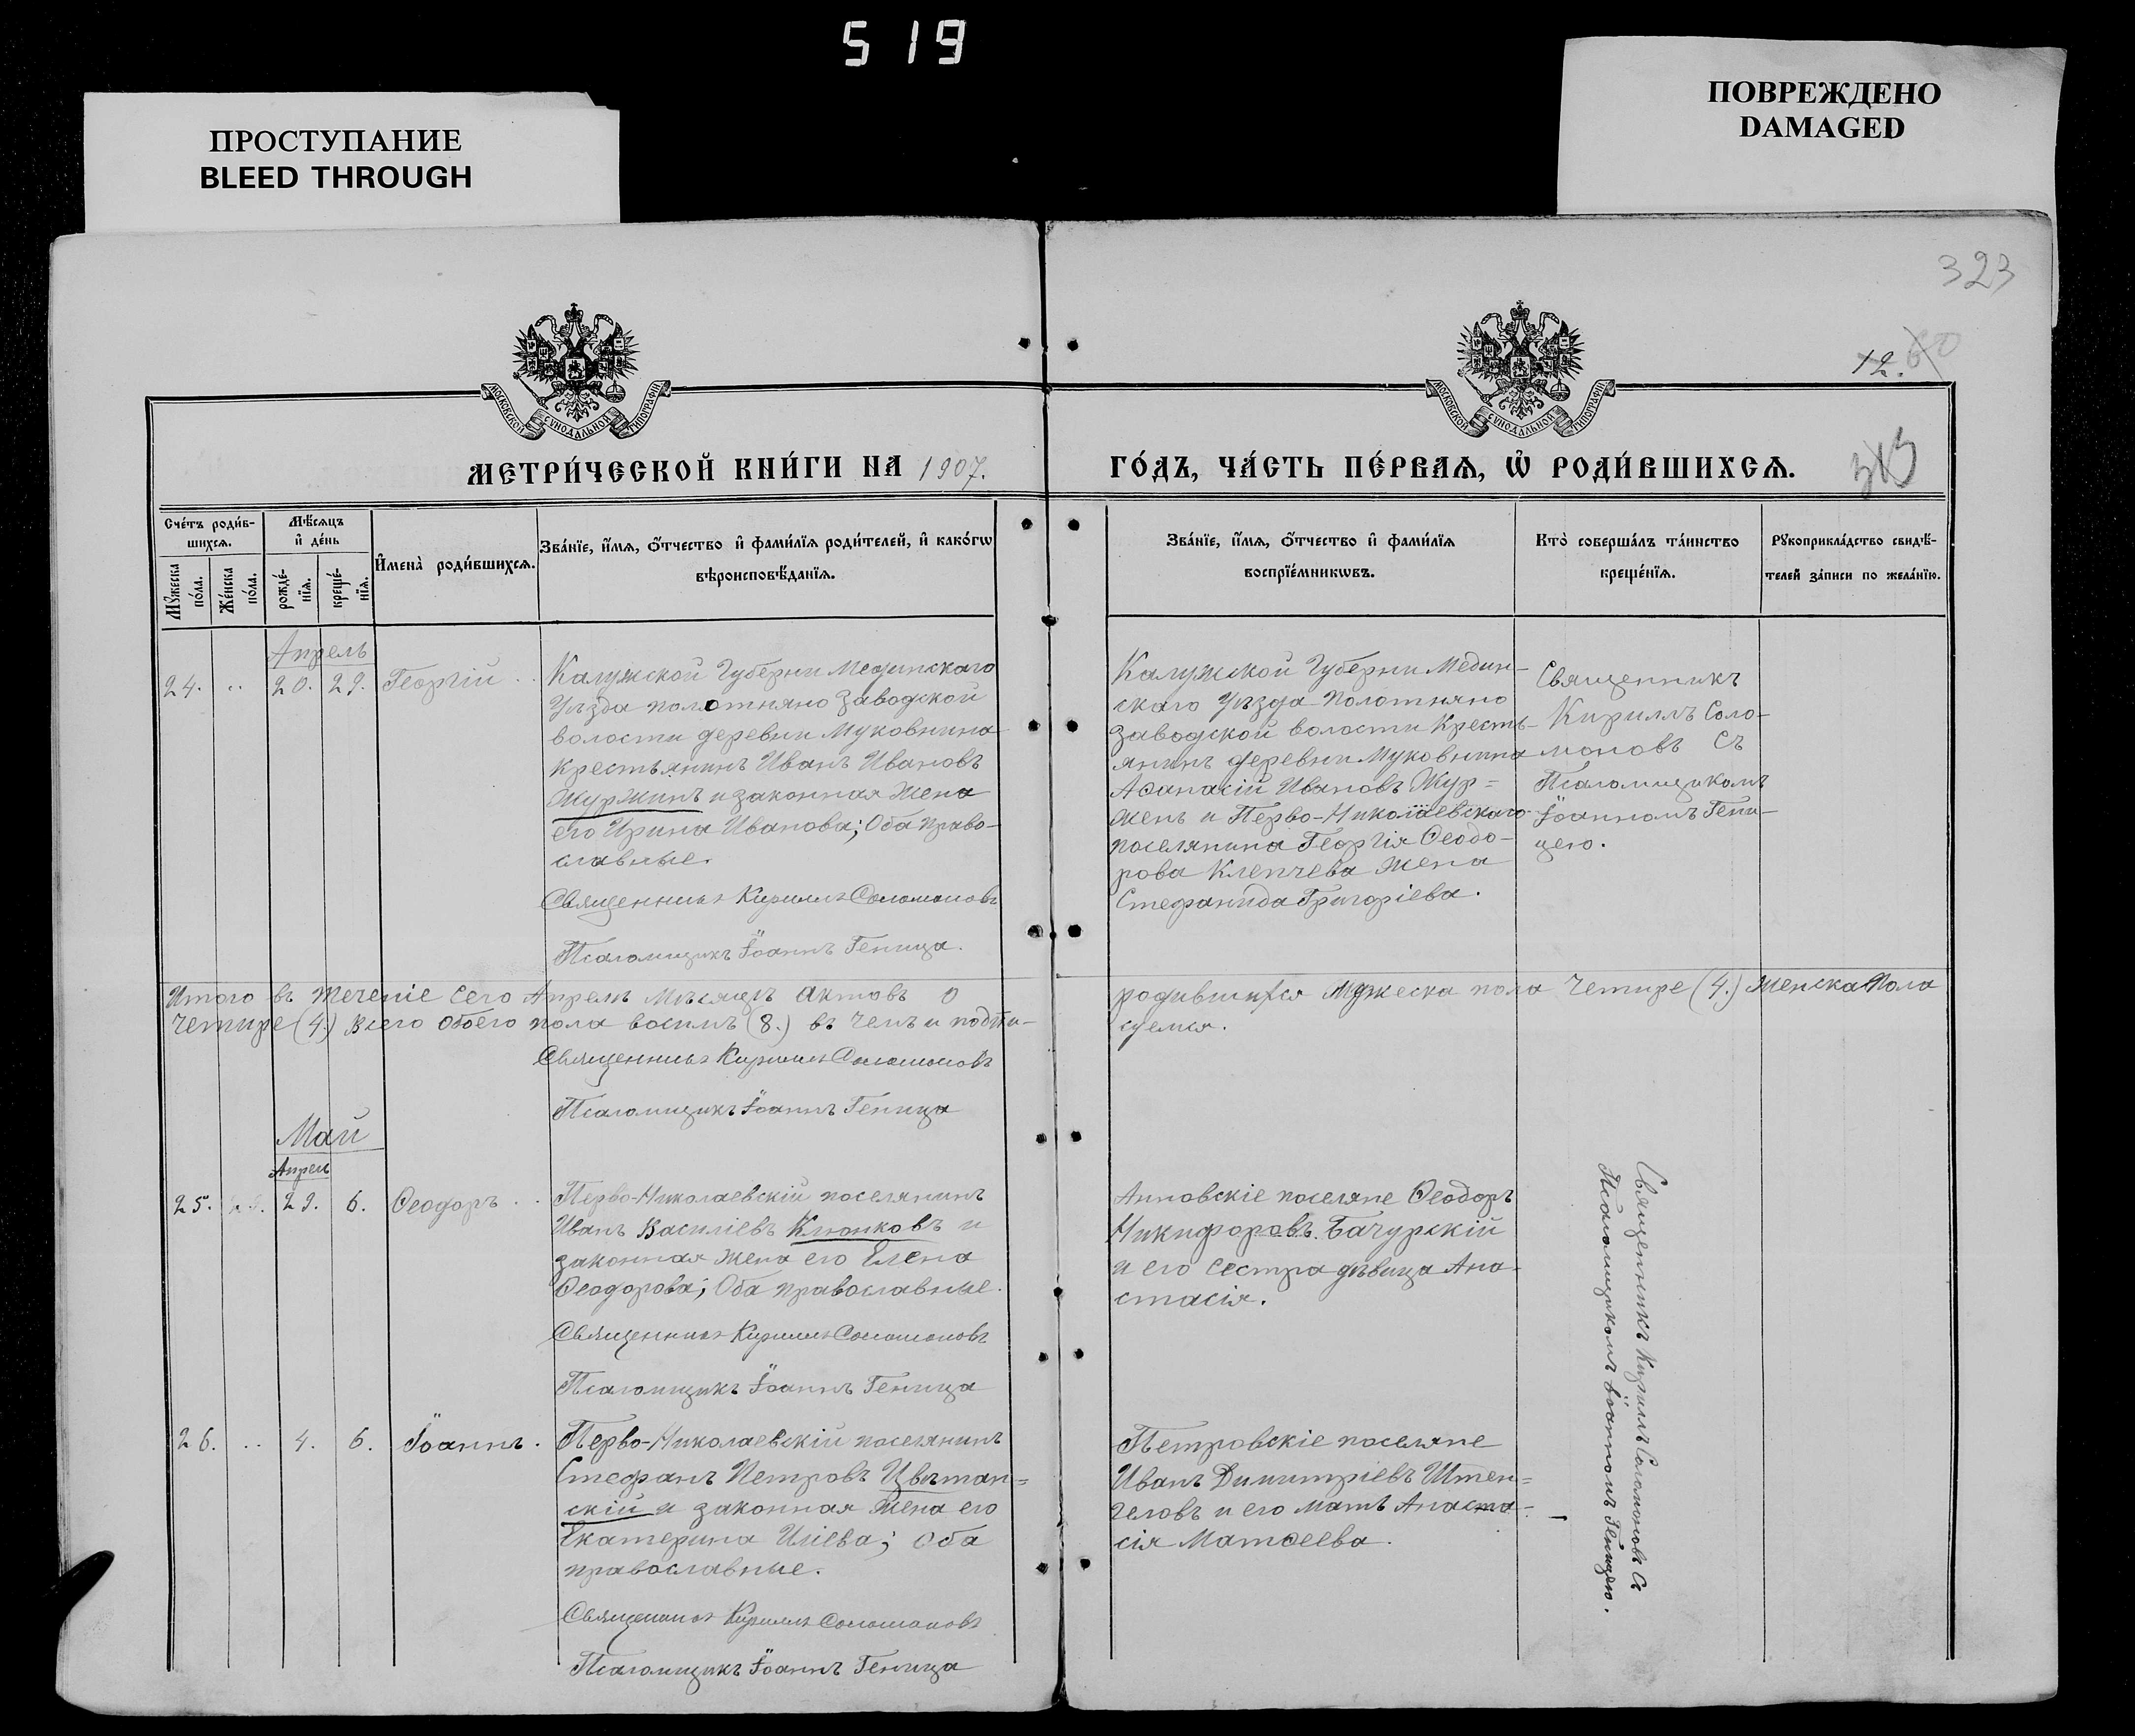 519
ПРОСТУПАНИЕ
BLEED THROUGH
ПОВРЕЖДЕНО
DAMAGED
323
12. 60
313
МОСКОВСКОЙ СѴНОДАЛЬНОЙ ТИПОГРАФІИ
МОСКОВСКОЙ СѴНОДАЛЬНОЙ ТИПОГРАФІИ
МЕТРИ́ЧЕСКОЙ КНИ́ГИ НА 1907.
ГО́ДЪ, ЧА́СТЬ ПЕ́РВАѦ, Ѿ РОДИ́ВШИХСѦ.
Сче́тъ роди́в-
шихсѧ.
Мꙋ́жеска по́ла.
Же́нска по́ла.
Мѣ́сѧцъ
и҆ де́нь
рожде́-
нїѧ.
креще́-
нїѧ.
И҆мена̀ роди́вшихсѧ.
Зва́нїе, и҆́мѧ, ѻ҆́тчество и҆ фами́лїѧ роди́телей, и҆ како́гѡ
вѣроисповѣ́данїѧ.
Зва́нїе, и҆́мѧ, ѻ҆́тчество и҆ фами́лїѧ
воспрїе́мникѡвъ.
Кто̀ соверша́лъ та́инство
креще́нїѧ.
Рꙋкоприкла́дство свидѣ́-
телей за́писи по жела́нїю.
Апрель
24. .. 20. 29. Георгій . .
Калужской Губерни Медынскаго
Уѣзда полотняно Заводской
волости деревни Муковнина
крестьянинъ Иванъ Ивановъ
Журжинъ и законная Жена
его Ирина Иванова; Оба право-
славные.
Священникъ Кириллъ Соломоновъ
Псаломщикъ Іоаннъ Геница.
Калужской Губерни Медин-
скаго Уѣзда Полотняно
Заводской волости Кресть-
янинъ деревни Муковнина
Аѳанасій Ивановъ Жур=
женъ и Перво-Николаевскаго
поселянина Георгія Ѳеодо-
рова Клепчева Жена
Стефанида Григоріева.
Священникъ
Кириллъ Соло-
моновъ съ
Псаломщикомъ
Іоанномъ Гени-
цею.
Итого въ теченіе сего Апрель Мѣсяцъ актовъ о родившихся Мужеска пола Четире (4.) Женска Пола
Четире (4.) Всего обоего пола восимъ (8.) въ чемъ и подпи-
суемся.
Священникъ Кириллъ Соломоновъ
Псаломщикъ Іоаннъ Геница
Май
Апрель
25. 29. 6. Ѳеодоръ . .
Перво-Николаевскій поселянинъ
Иванъ Василіевъ Клюнковъ и
законная Жена его Елена
Ѳеодорова; Оба православные.
Священникъ Кириллъ Соломоновъ
Псаломщикъ Іоаннъ Геница
Анновскіе поселяне Ѳеодоръ
Никифоровъ Бачурскій
и его сестра дѣвица Ана-
стасія.
26. .. 4. 6. Іоаннъ .
Перво-Николаевскій поселянинъ
Стефанъ Петровъ Цвѣтан=
скій и законная Жена его
Екатерина Иліева; Оба
православные.
Священникъ Кириллъ Соломоновъ
Псаломщикъ Іоаннъ Геница
Петровскіе поселяне
Иванъ Димитріевъ Штен=
геловъ и его мать Анаста-
сія Матѳеева.
Священникъ Кириллъ Соломоновъ съ
Псаломщикомъ Іоанномъ Геницею.